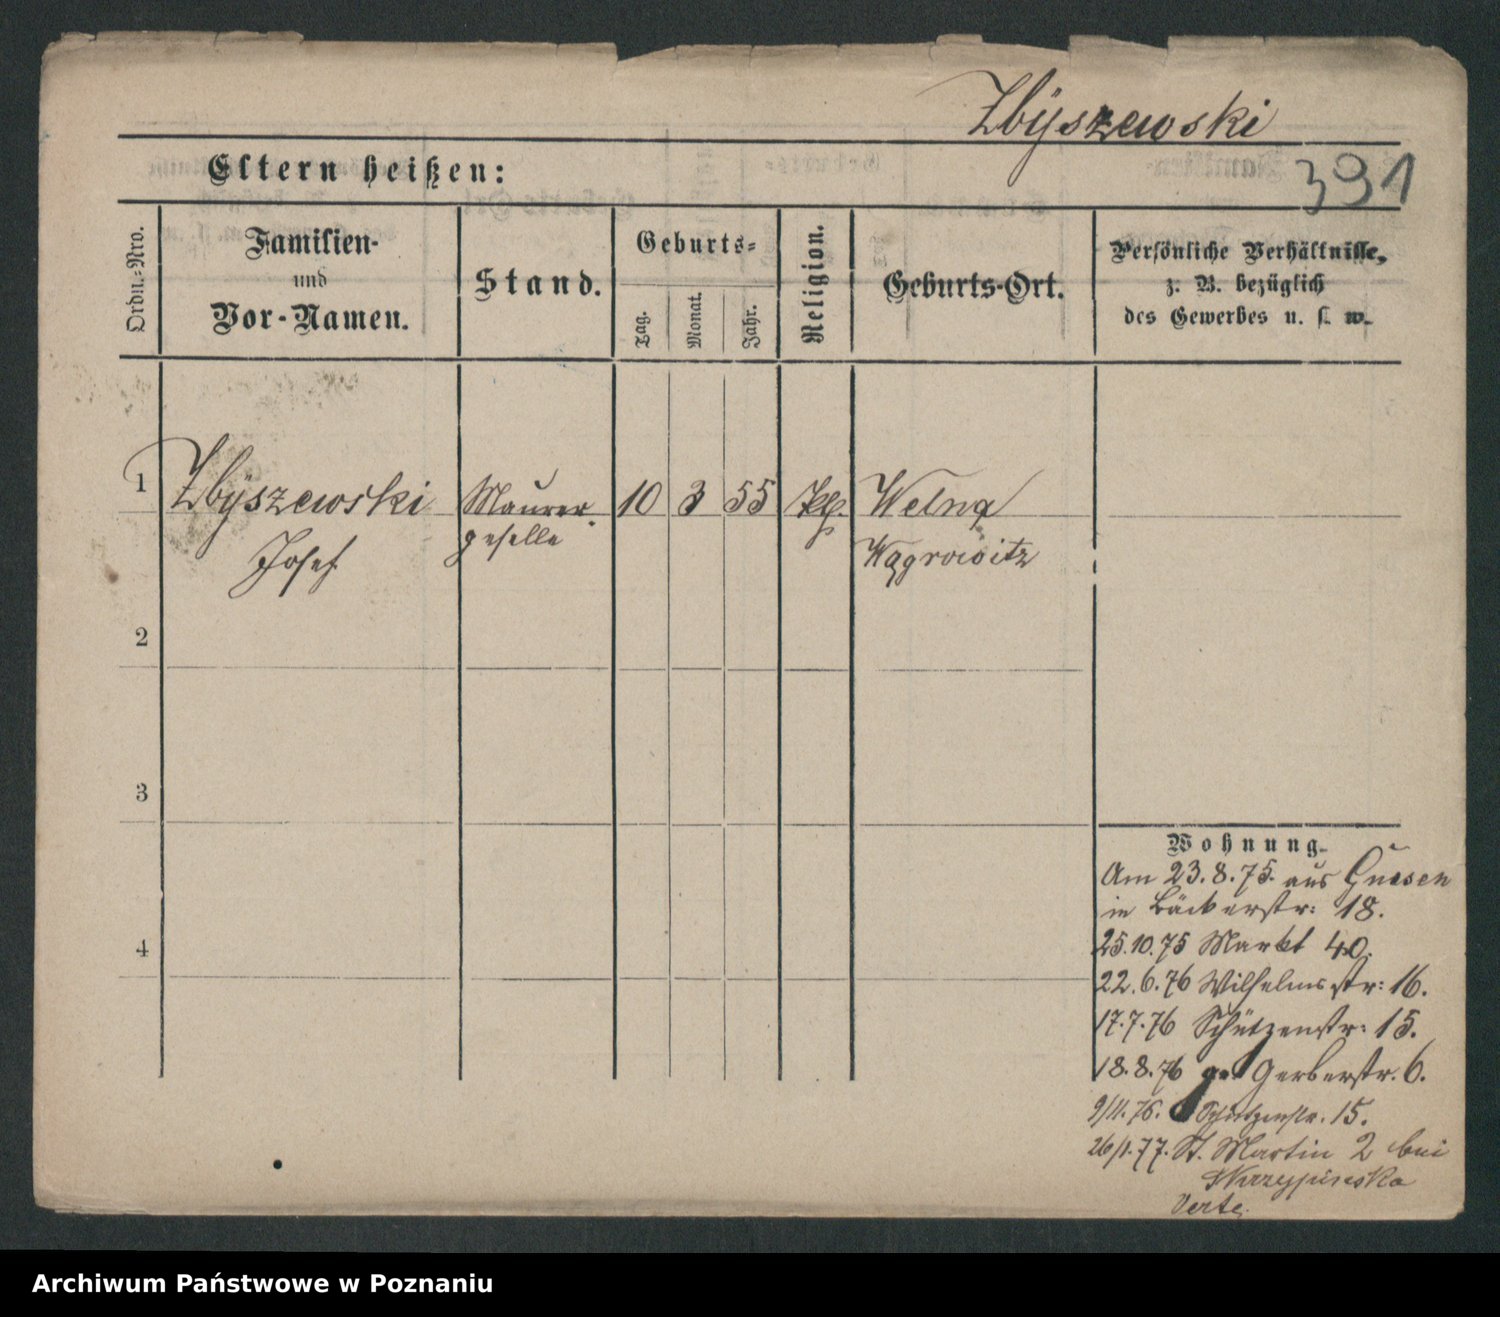 Zbyszewski
391
Eltern heißen:
Ordn.-Nro.
Familien-
und
Vor-Namen.
Stand.
Geburts-
Tag.
Monat.
Jahr.
Religion.
Geburts-Ort.
Persönliche Verhältnisse,
z. B. bezüglich
des Gewerbes u. s. w.
1 Zbyszewski Maurer 10 3 55 Welna
Josef geselle Wągrowitz
2
3
4
Wohnung.
Am 23.8.75. aus Gnesen
in Bäckerstr: 18.
25.10.75 Markt 40.
22.6.76 Wilhelmsstr: 16.
17.7.76 Schützenstr: 15.
18.8.76 Gerberstr. 6.
9/11.76. Schützenstr. 15.
26/1.77. St. Martin 2 bei
Skrzypinska
Verte.
Archiwum Państwowe w Poznaniu